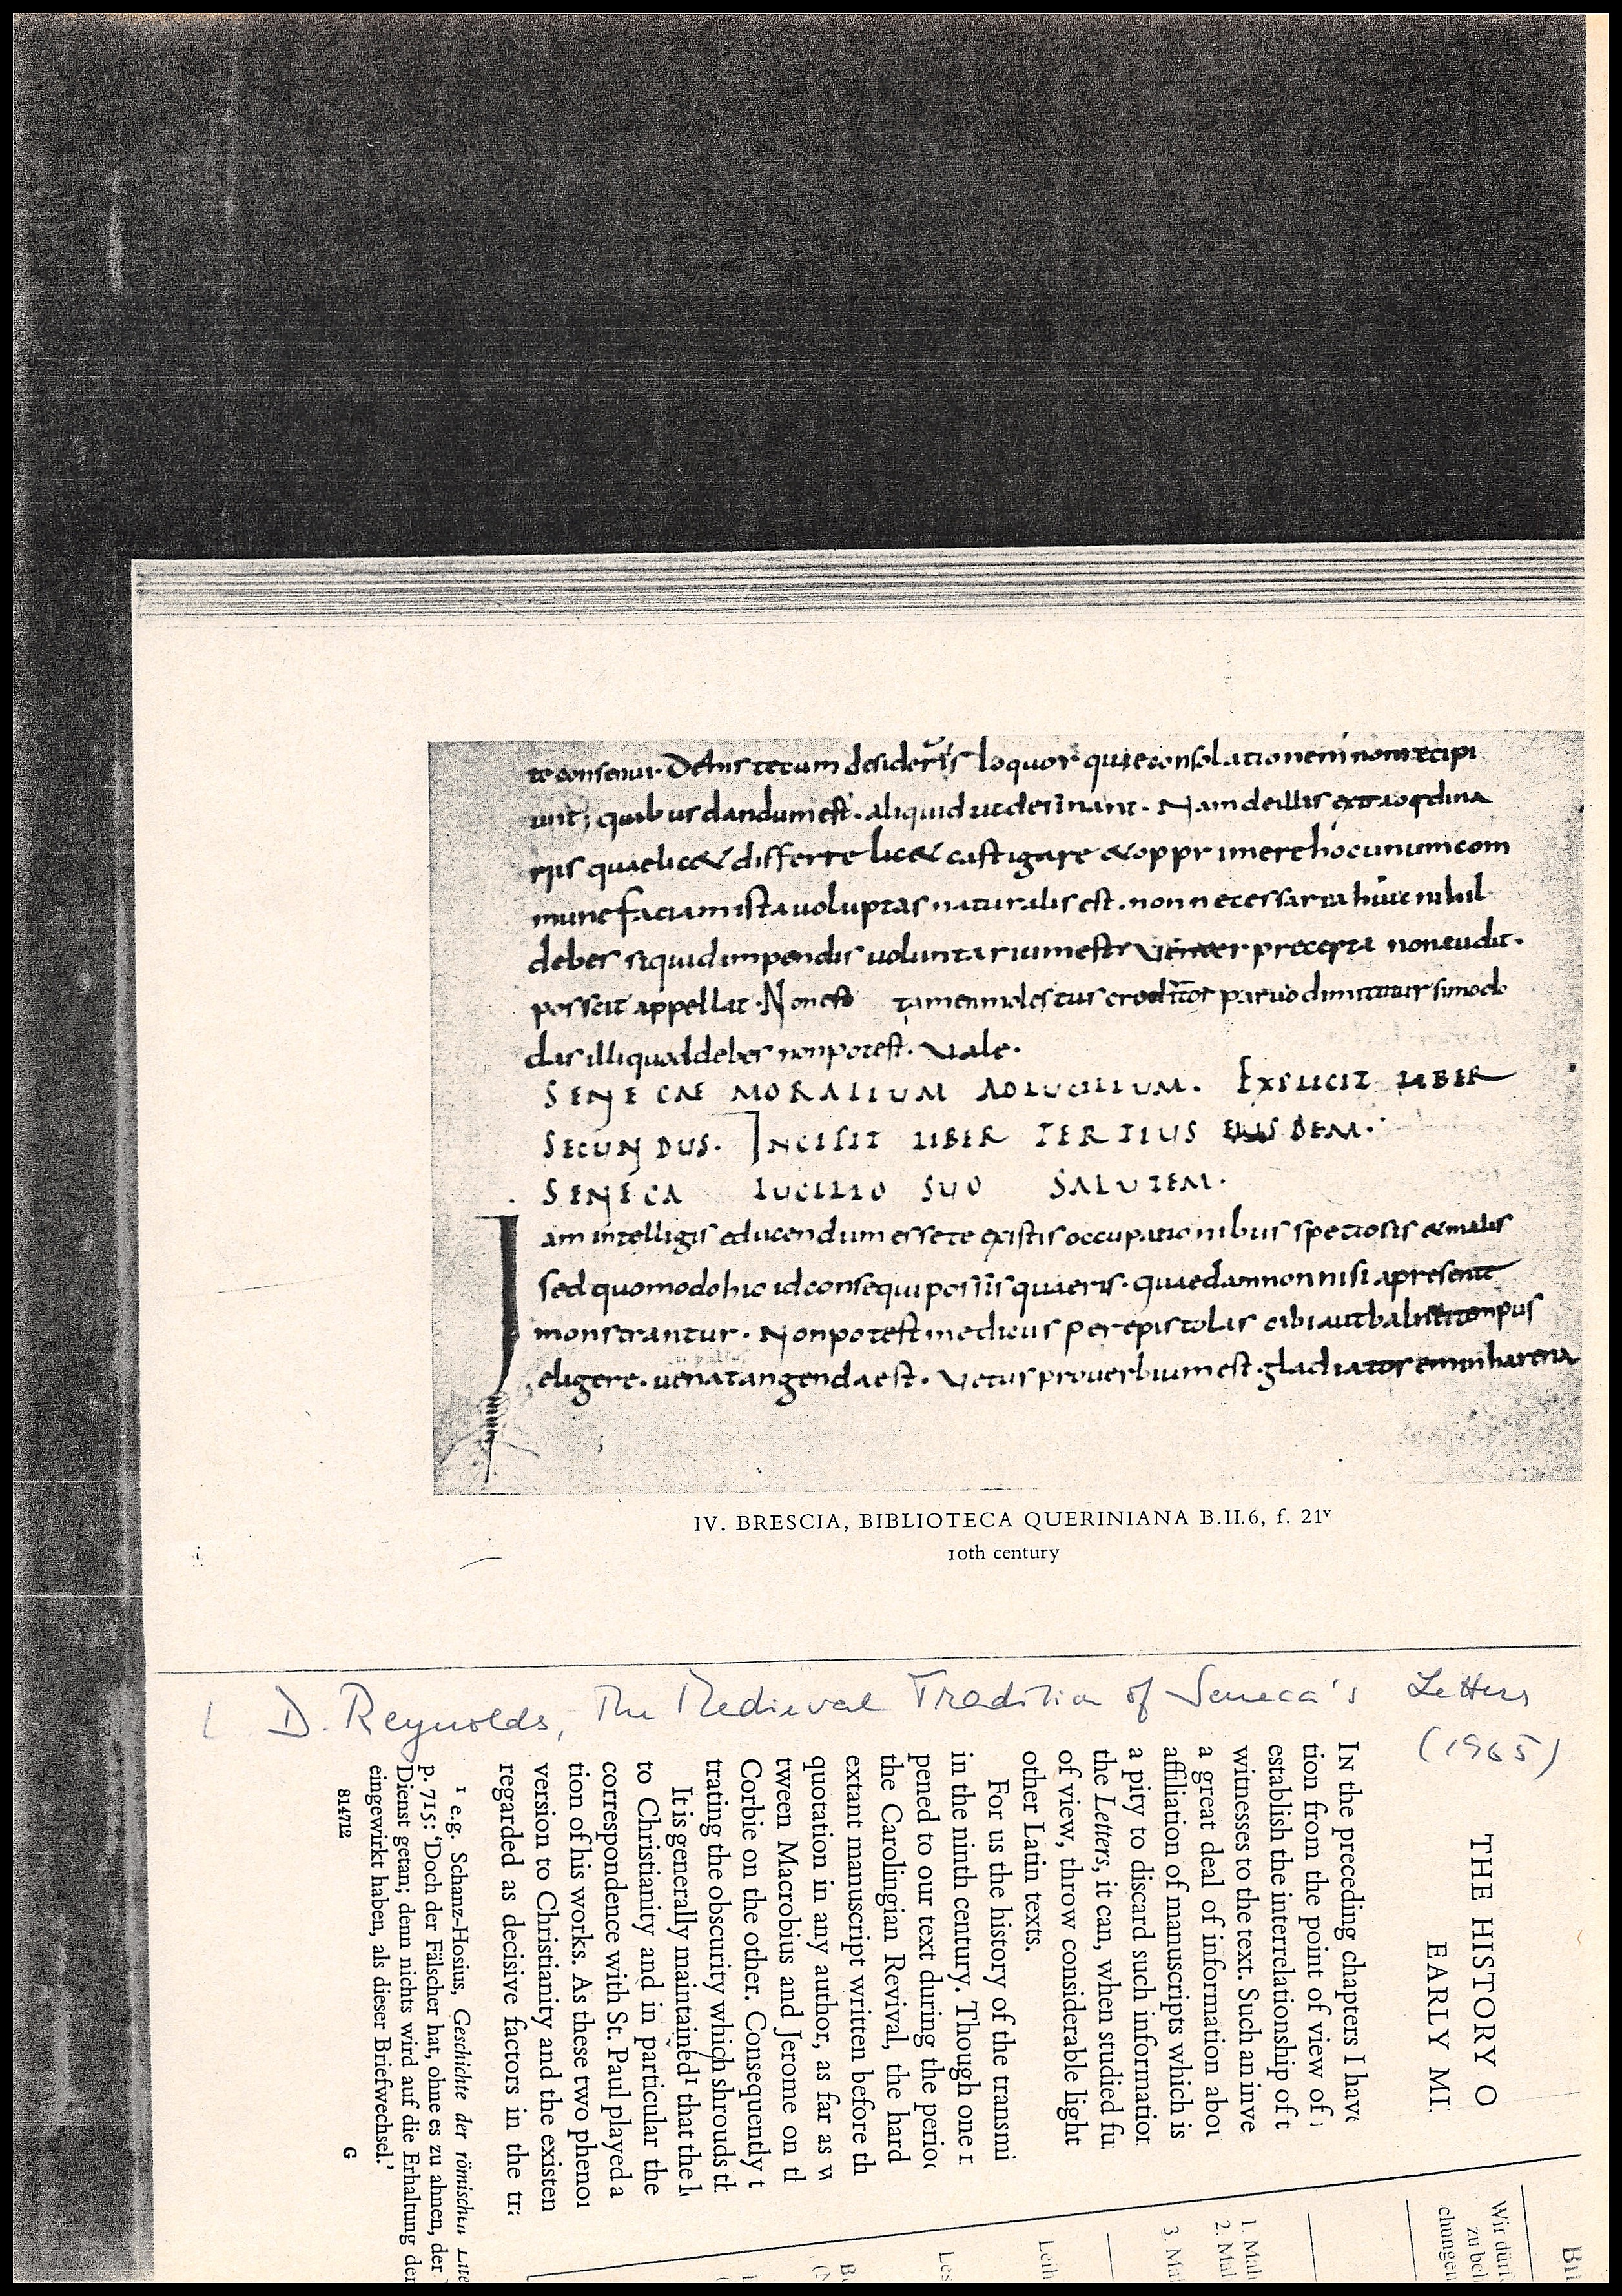 te consenui. De his tecum desideriis loquor quae consolationem non recipi
unt; quibus dandum est. aliquid ut desinant. Nam de illis extraordina
riis quae licet differre licet castigare et opprimere hoc unum com
mune faciam ista voluptas naturalis est. non necessaria huic nihil
debes siquid impendis voluntarium est venter precepta non audit.
poscit appellat. Non est tamen molestus creditor parvo dimittitur si modo
das illi quod debes non potest. Vale.
SENECAE MORALIUM AD LUCILLIUM. EXPLICIT LIBER
SECUNDUS. INCIPIT LIBER TERTIUS EIUSDEM.
SENECA LUCILIO SUO SALUTEM.
Iam intelligis educendum esse te ex istis occupationibus speciosis et malis
sed quomodo hic id consequi possis quaeris. quaedam non nisi a presente
monstrantur. Non potest medicus per epistolas cibi aut balinei tempus
eligere. vena tangenda est. Vetus proverbium est. gladiatorem in harena
IV. BRESCIA, BIBLIOTECA QUERINIANA B.II.6, f. 21v
10th century
L D. Reynolds, The Medieval Tradition of Seneca's Letters
(1965)
THE HISTORY O
EARLY MI
IN the preceding chapters I have
tion from the point of view of
establish the interrelationship of t
witnesses to the text. Such an inve
a great deal of information abou
affiliation of manuscripts which is
a pity to discard such information
the Letters, it can, when studied fu
of view, throw considerable light
other Latin texts.
For us the history of the transmi
in the ninth century. Though one
pened to our text during the period
the Carolingian Revival, the hard
extant manuscript written before th
quotation in any author, as far as w
tween Macrobius and Jerome on th
Corbie on the other. Consequently t
trating the obscurity which shrouds th
It is generally maintained¹ that the l
to Christianity and in particular the
correspondence with St. Paul played a
tion of his works. As these two pheno
version to Christianity and the existen
regarded as decisive factors in the tra
¹ e.g. Schanz-Hosius, Geschichte der römischen
p. 715: 'Doch der Fälscher hat, ohne es zu ahnen, der
Dienst getan; denn nichts wird auf die Erhaltung der
eingewirkt haben, als dieser Briefwechsel.'
814712 G
Wir dürfen
zu be
chungen
1. Mah
2. Mal
3. Mal
Leih
Les